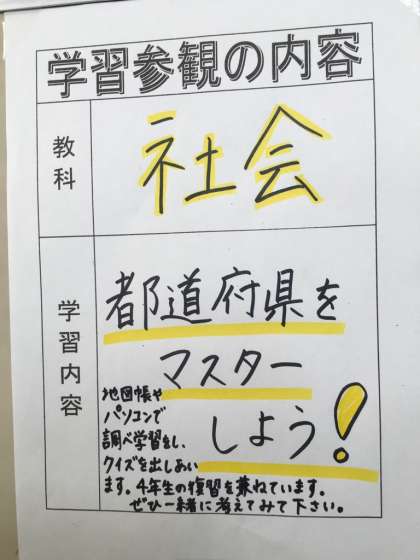 学習参観の内容
教科
社会
学習内容
都道府県を
マスター
しよう!
地図帳や
パソコンで
調べ学習をし、
クイズを出しあい
ます。4年生の復習を兼ねています。
ぜひ一緒に考えてみて下さい。